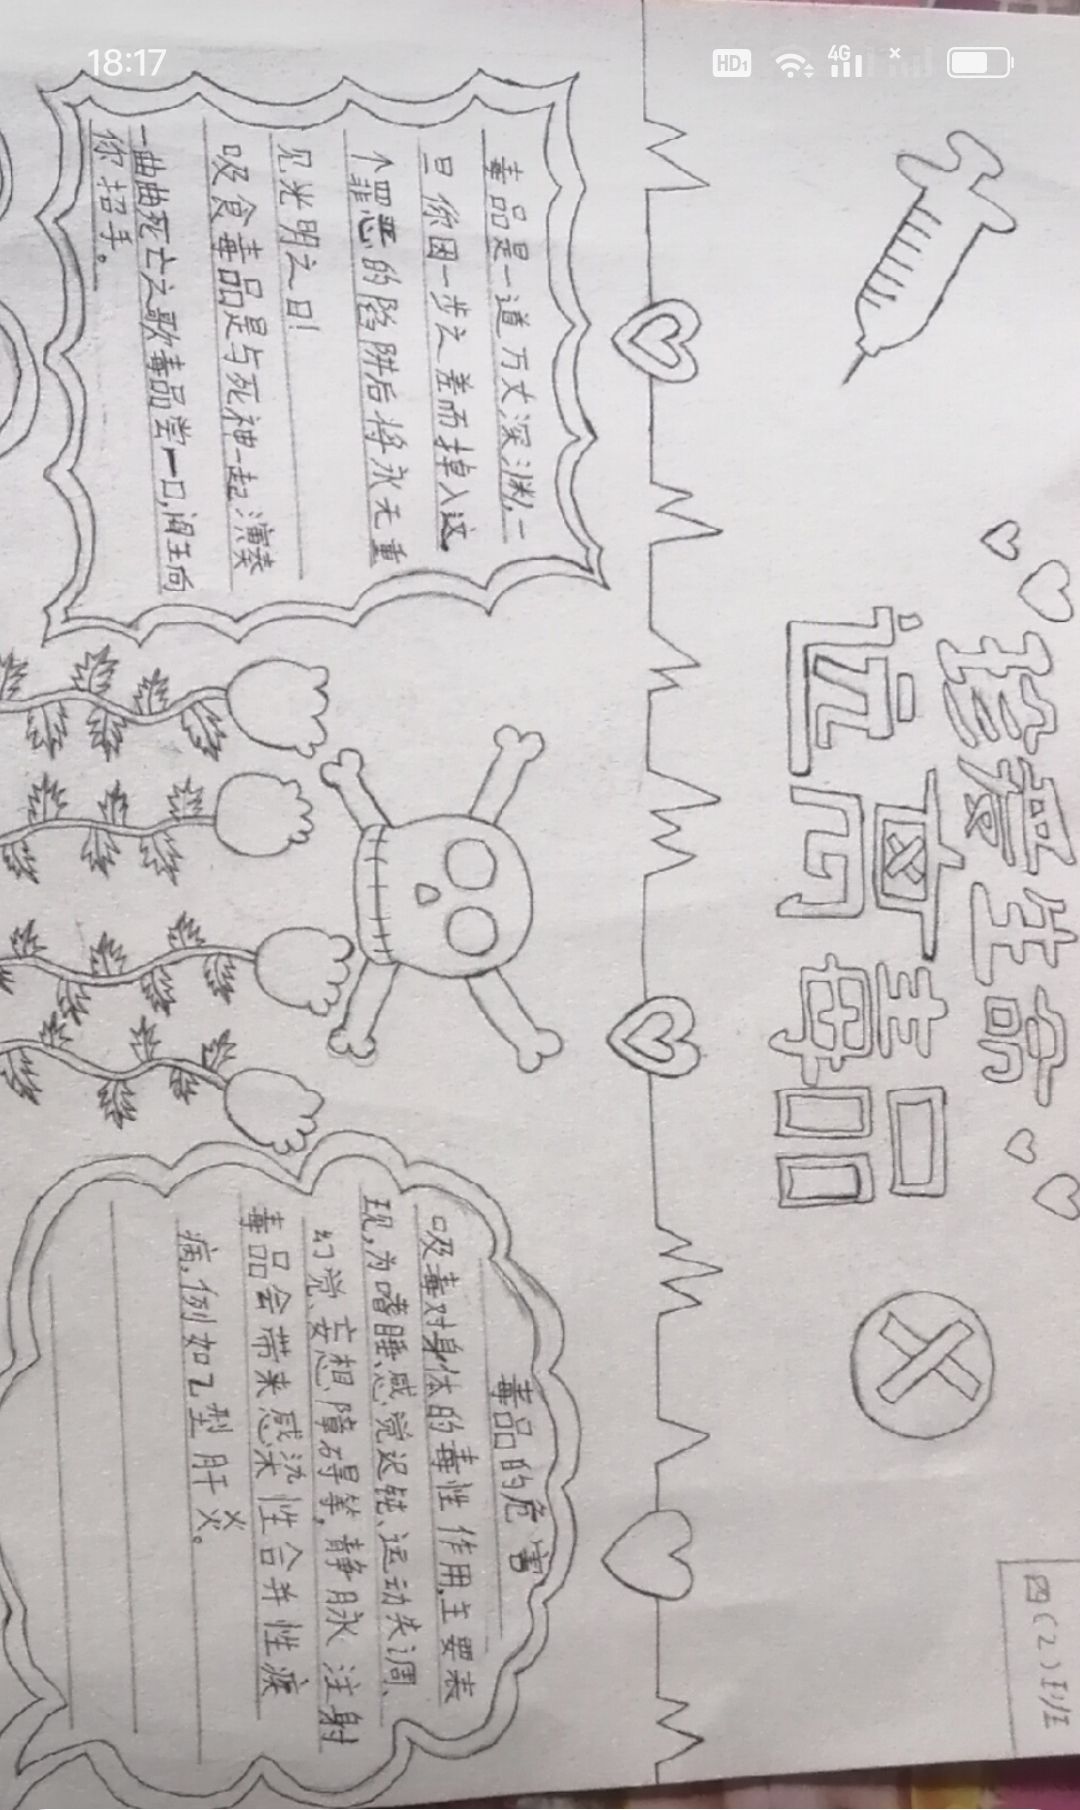 18:17
HD1
4G
珍爱生命
远离毒品
四(2)班
毒品是一道万丈深渊,一
旦你因一步之差而掉入这
个罪恶的陷阱后将永无重
见光明之日!
吸食毒品是与死神一起演奏
一曲曲死亡之歌毒品尝一口,阎王向
你招手。
毒品的危害
吸毒对身体的毒性作用,主要表
现,为嗜睡、感觉迟钝、运动失调、
幻觉、妄想、障碍等,静脉注射
毒品会带来感染性合并性疾
病,例如乙型肝炎。